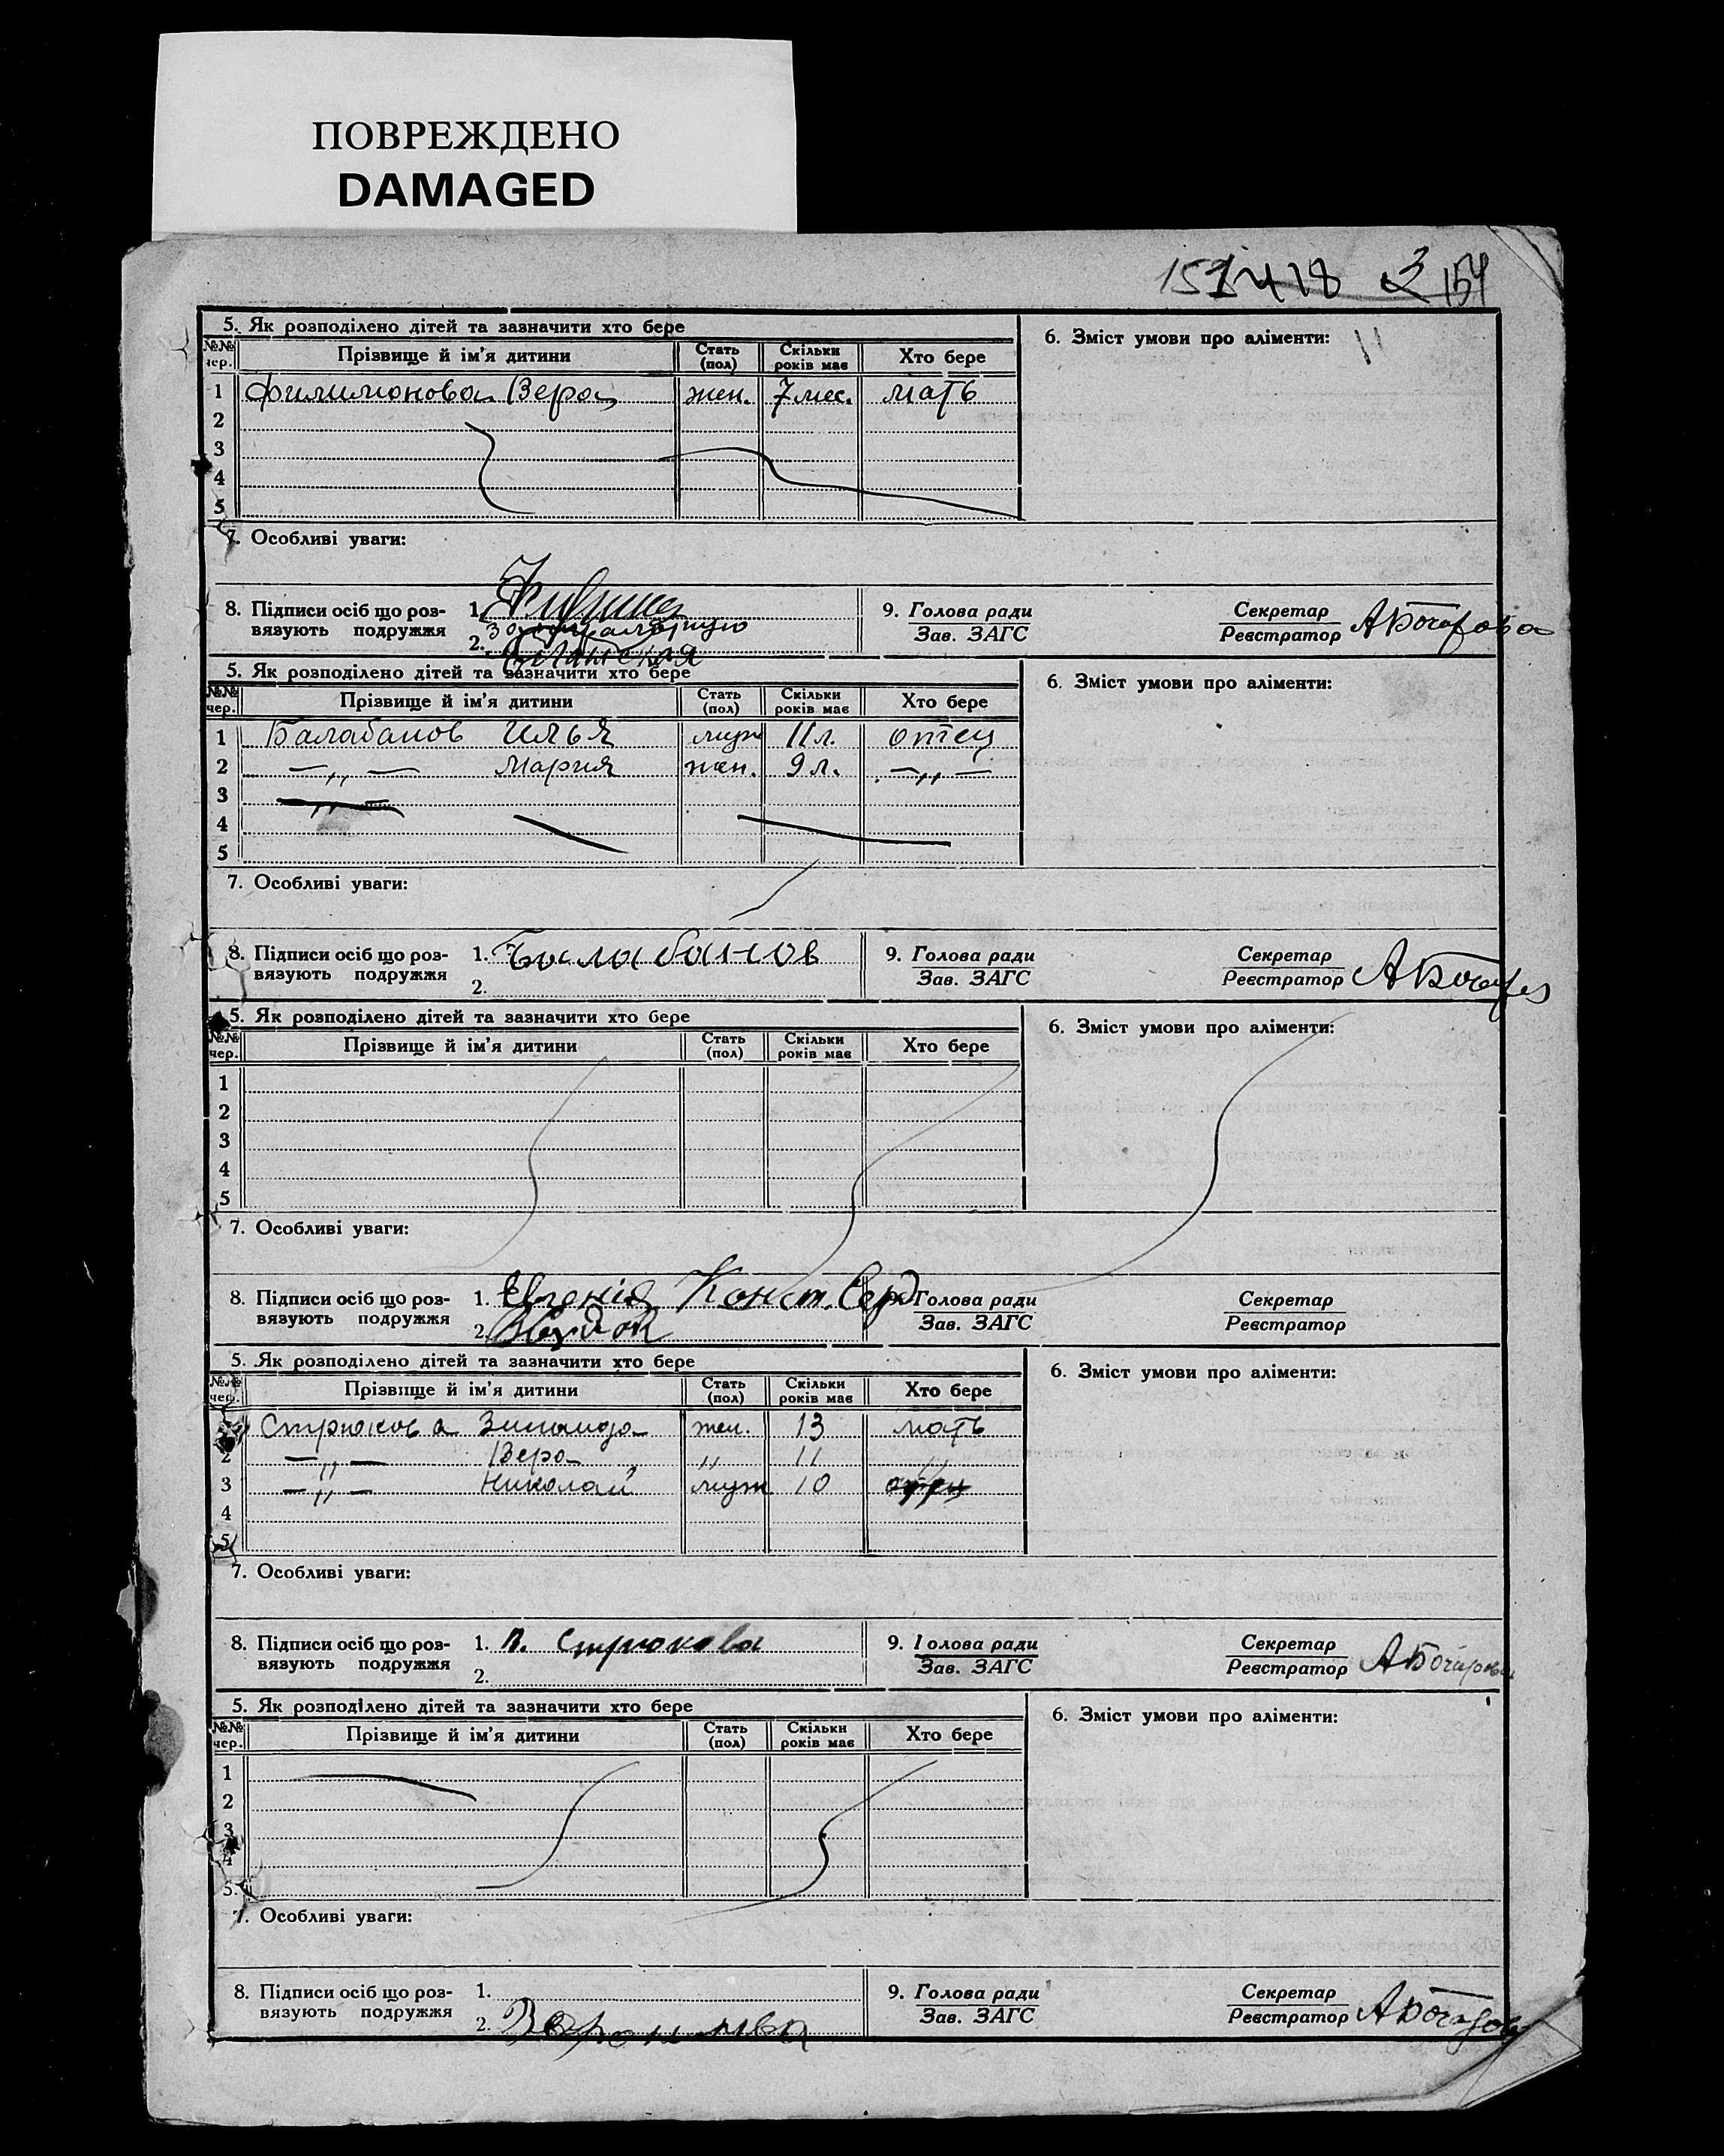 ПОВРЕЖДЕНО
DAMAGED
154
5. Як розподілено дітей та зазначити хто бере
6. Зміст умови про аліменти:
№№ чер. Прізвище й ім'я дитини Стать (пол) Скільки років має Хто бере
1 Филимонова Вера жен. 7 мес. мать
2
3
4
5
7. Особливі уваги:
8. Підписи осіб що роз- 1. 9. Голова ради Секретар
вязують подружжя 2. Зав. ЗАГС Реєстратор АБочарова
5. Як розподілено дітей та зазначити хто бере
6. Зміст умови про аліменти:
№№ чер. Прізвище й ім'я дитини Стать (пол) Скільки років має Хто бере
1 Балабанов Илья муж 11 л. отец
2 —„— Мария жен. 9 л. —„—
3 —„—
4
5
7. Особливі уваги:
8. Підписи осіб що роз- 1. Балабанов 9. Голова ради Секретар
вязують подружжя 2. Зав. ЗАГС Реєстратор АБочар
5. Як розподілено дітей та зазначити хто бере
6. Зміст умови про аліменти:
№№ чер. Прізвище й ім'я дитини Стать (пол) Скільки років має Хто бере
1
2
3
4
5
7. Особливі уваги:
8. Підписи осіб що роз- 1. Евгенія Конст. Серд Голова ради Секретар
вязують подружжя 2. Зав. ЗАГС Реєстратор
5. Як розподілено дітей та зазначити хто бере
6. Зміст умови про аліменти:
№№ чер. Прізвище й ім'я дитини Стать (пол) Скільки років має Хто бере
Стрюкова Зинаида жен. 13 мать
2 —„— Вера „ 11 „
3 —„— Николай муж 10 отец
4
5
7. Особливі уваги:
8. Підписи осіб що роз- 1. П. Стрюкова 9. Голова ради Секретар
вязують подружжя 2. Зав. ЗАГС Реєстратор АБочарова
5. Як розподілено дітей та зазначити хто бере
6. Зміст умови про аліменти:
№№ чер. Прізвище й ім'я дитини Стать (пол) Скільки років має Хто бере
1
2
3
4
5.
7. Особливі уваги:
8. Підписи осіб що роз- 1. 9. Голова ради Секретар
вязують подружжя 2. Зав. ЗАГС Реєстратор АБочарова